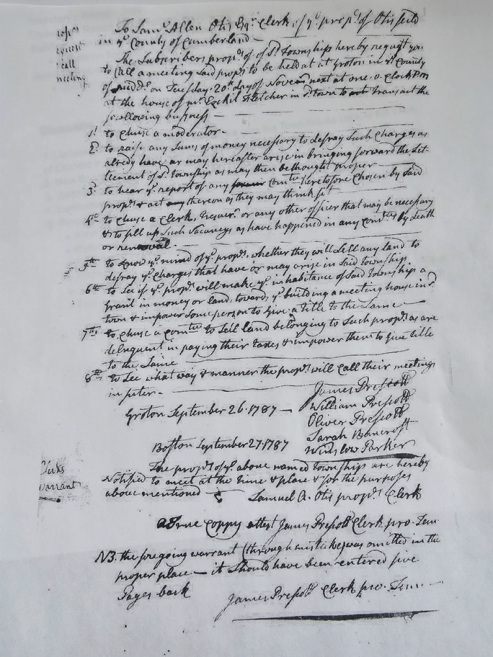 To Saml. Allen Otis Esqr. Clerk of ye. proprs. of Otisfield
in ye County of Cumberland—
The Subscribers propr. of sd. Township hereby request you
to Call a meeting Said propr. to be held at at Groton in ye County
of on Tuesday 20th. day of Novemr. next at one o Clock PM
at the house of mr. Fletcher in town to transact the
following business—
1st. to Chuse a moderator—
2d. to raise any Sums of money necessary to defray Such Charges as
already have or may hereafter arise in bringing forward the Set
tlement of sd. township as may then be thought proper
3d. to hear ye report of any Comtee. heretofore Chosen by Said
propr. & act thereon as they may think fit
4th to Chuse a Clerk, or any other officer that may be necessary
& to fill up Such Vacancys as have happened in any Comtee. by death
or removal—
5th to know ye mind of ye propr. whether they will Sell any land to
defray ye Charges that have or may arise in Said township
6th to See if ye propr. will make ye inhabitance of Said Township a
Grant in money or land, toward ye building a meeting house in sd.
town & impower Some person to Give a title to the Same—
7th to Chuse a Comtee to Sell land belonging to Such propr. as are
delinquent in paying their taxes & impower them to Give title
to the Same
8th to See what way & manner the propr. will Call their meetings
in
James Prescott
Groton September 26. 1787— William Prescott
Oliver Prescott
Sarah Bancroft
Boston September 27. 1787
Winslow Parker
Clerks
warrant
The propr. of ye above named township are hereby
Notified to meet at the time & place & for the purposes
above mentioned
Samuel A. Otis propr. Clerk
a True Coppy attest James Prescott Clerk pro. Tem
NB. the foregoing warrant (through mistake) was omitted in the
proper place— it Should have been entered five
Pages back
James Prescott Clerk pro. Tem—